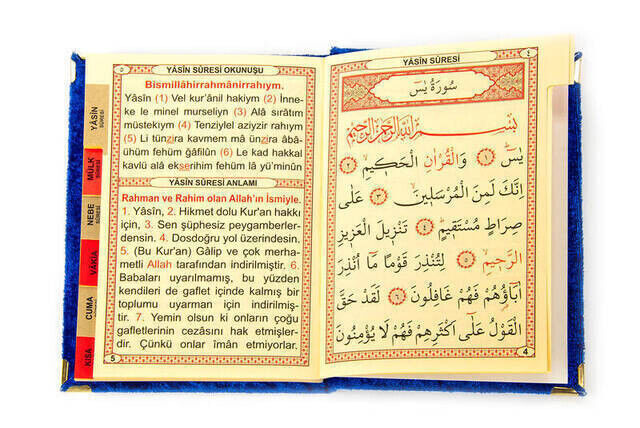 YÂSİN SÛRESİ OKUNUŞU
Bismillâhirrahmânirrahıym.
Yâsîn (1) Vel kur'ânil hakiym (2) İnne-
ke le minel murseliyn (3) Alâ sırâtım
müstekıym (4) Tenziylel aziyzir rahıym
(5) Li tünzira kavmem mâ ünzira âbâ-
ühüm fehüm ğâfilûn (6) Le kad hakkal
kavlü alâ ekserihim fehüm lâ yü'minûn
YÂSİN SÛRESİ ANLAMI
Rahman ve Rahim olan Allah'ın İsmiyle.
1. Yâsîn, 2. Hikmet dolu Kur'an hakkı
için, 3. Sen şüphesiz peygamberler-
densin. 4. Dosdoğru yol üzerindesin.
5. (Bu Kur'an) Gâlip ve çok merha-
metli Allah tarafından indirilmiştir. 6.
Babaları uyarılmamış, bu yüzden
kendileri de gaflet içinde kalmış bir
toplumu uyarman için indirilmiş-
tir. 7. Yemin olsun ki onların çoğu
gafletlerinin cezasını hak etmişler-
dir. Çünkü onlar îmân etmiyorlar.
5
YÂSİN
SÛRESİ
MÜLK
NEBE
SÛRESİ
VÂKIA
CUMA
KISA
YÂSİN SÛRESİ
٤
سُورَةُ يٰسٓ
بِسْمِ اللّٰهِ الرَّحْمٰنِ الرَّحِيمِ
يٰسٓ ﴿١﴾ وَالْقُرْاٰنِ الْحَكِيمِ ﴿٢﴾
اِنَّكَ لَمِنَ الْمُرْسَلِينَ ﴿٣﴾ عَلٰى
صِرَاطٍ مُسْتَقِيمٍ ﴿٤﴾ تَنْزِيلَ الْعَزِيزِ
الرَّحِيمِ ﴿٥﴾ لِتُنْذِرَ قَوْمًا مَٓا اُنْذِرَ
اٰبَٓاؤُ۬هُمْ فَهُمْ غَافِلُونَ ﴿٦﴾ لَقَدْ حَقَّ
الْقَوْلُ عَلٰٓى اَكْثَرِهِمْ فَهُمْ لَا يُؤْمِنُونَ
4